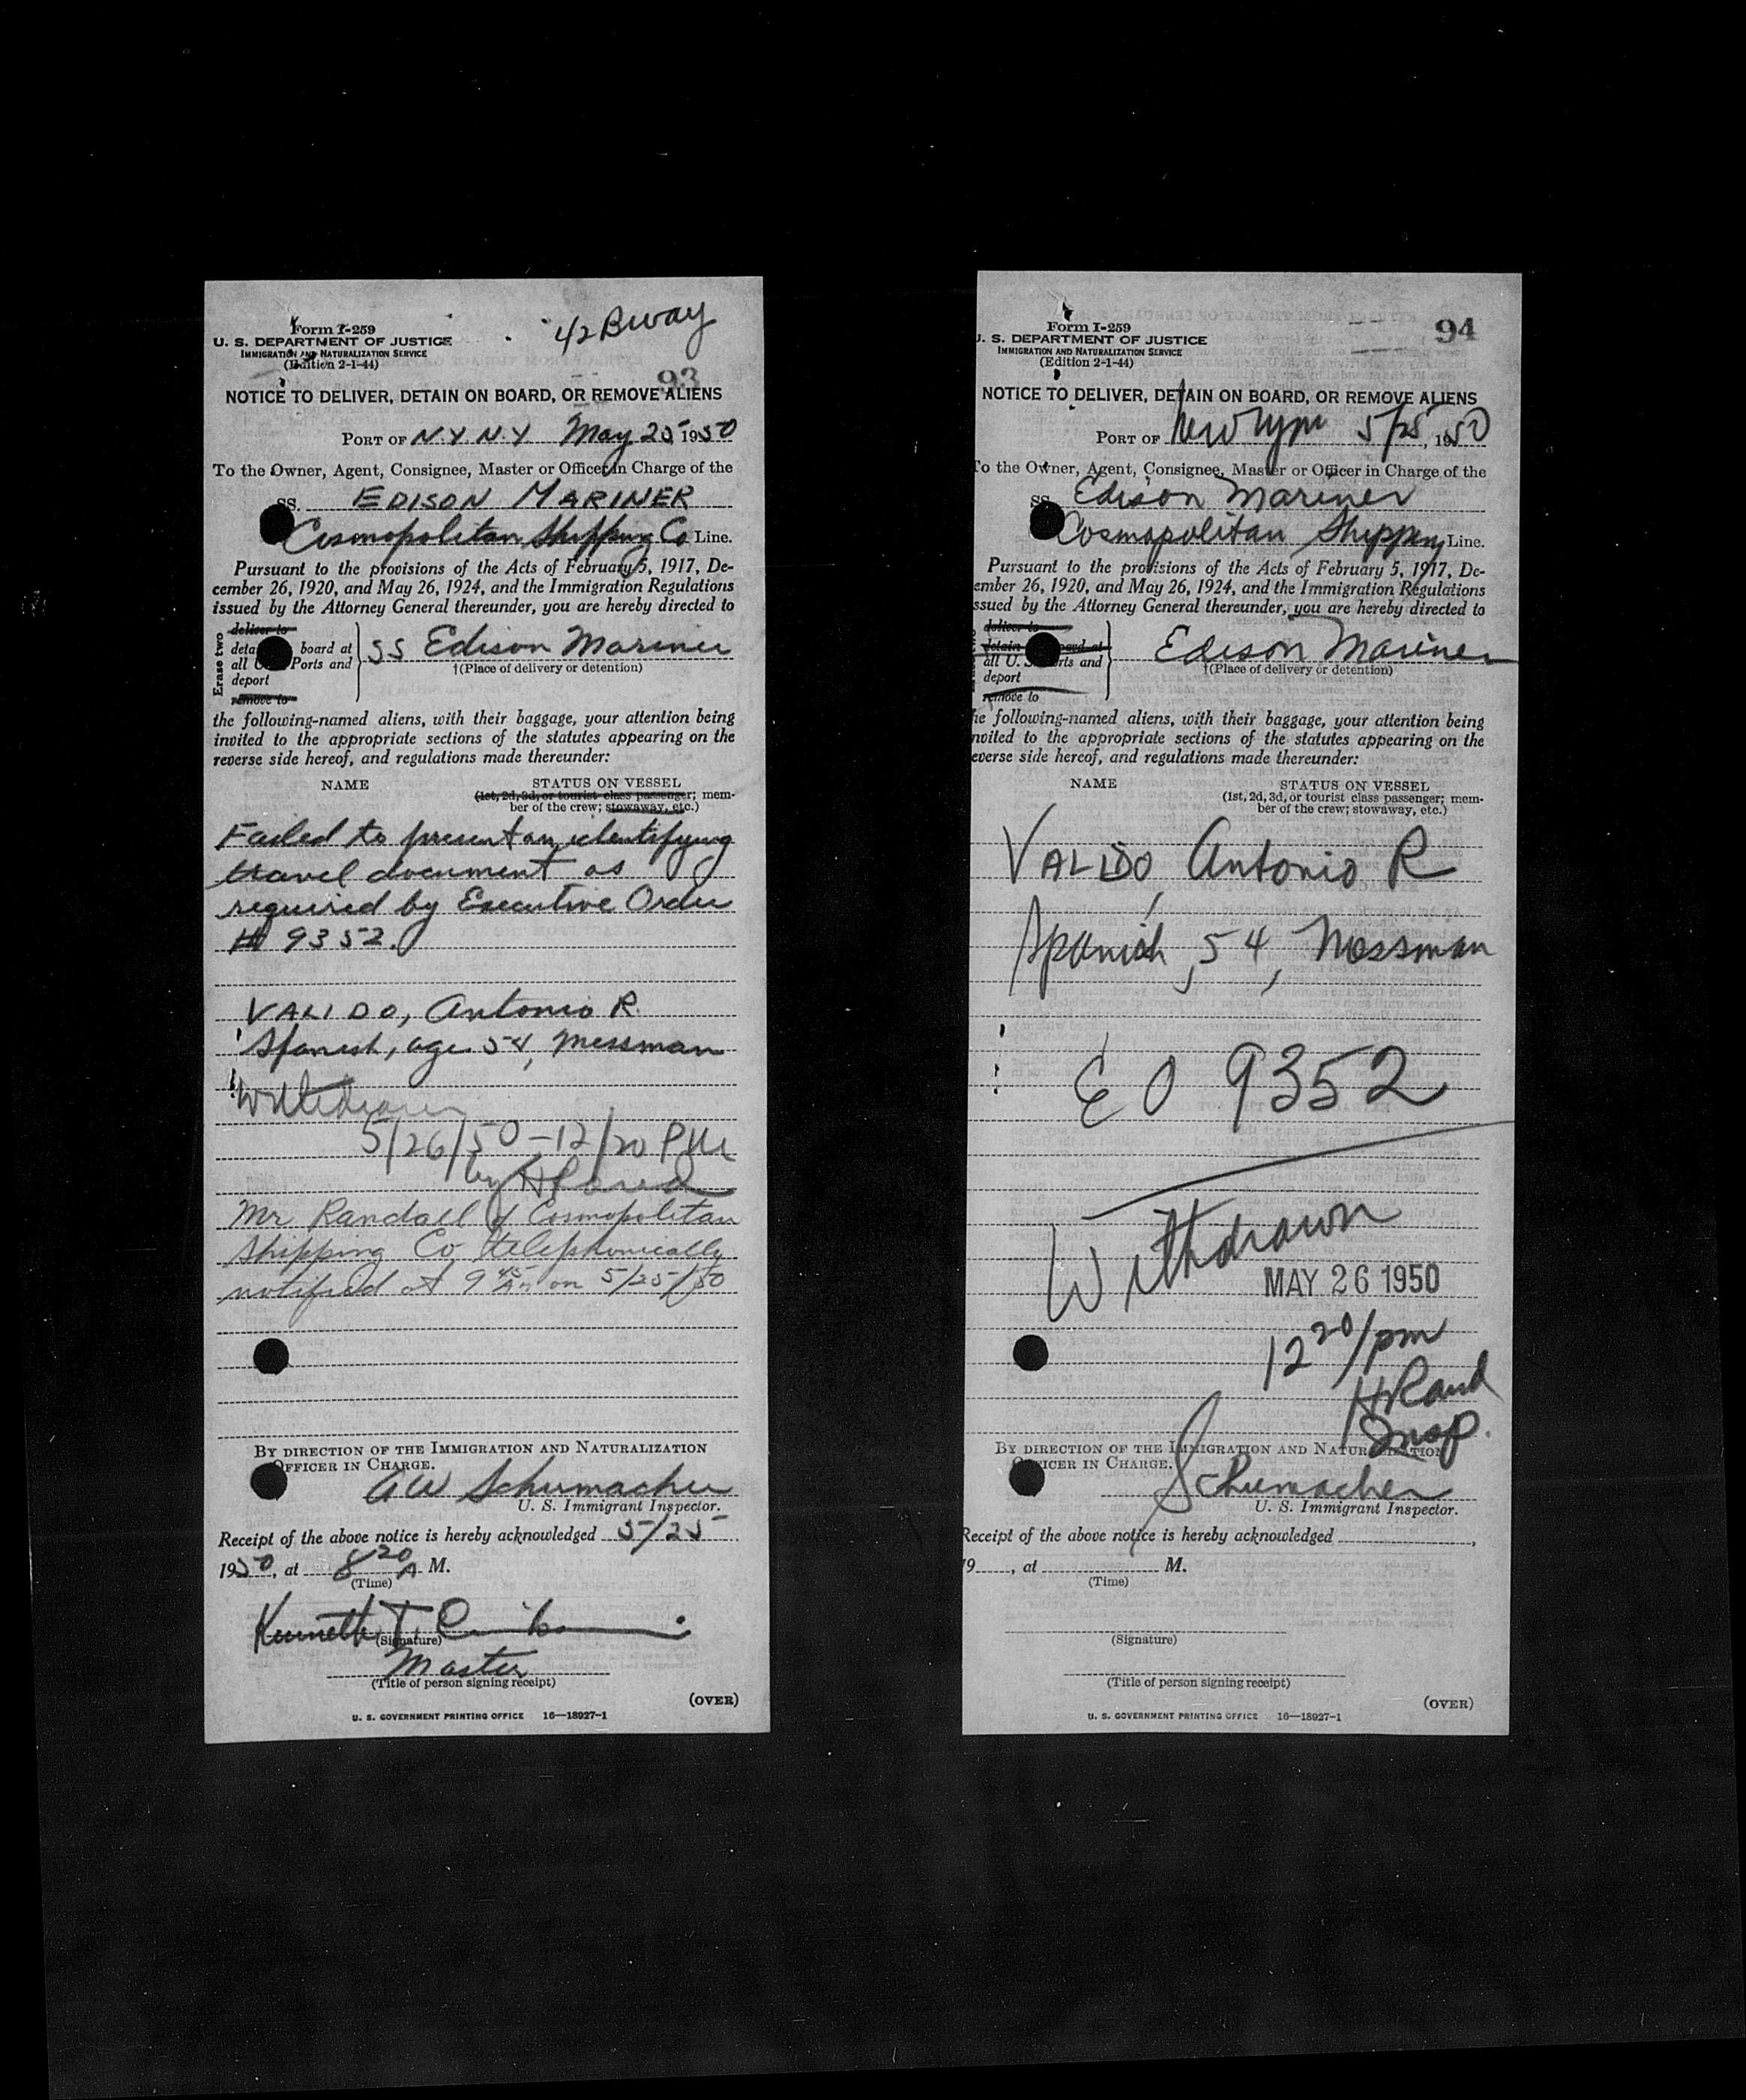 Form I-259
U. S. DEPARTMENT OF JUSTICE
IMMIGRATION AND NATURALIZATION SERVICE
(Edition 2-1-44)
42 Bway
93
NOTICE TO DELIVER, DETAIN ON BOARD, OR REMOVE ALIENS
PORT OF N.Y N.Y May 25 1950
To the Owner, Agent, Consignee, Master or Officer in Charge of the
SS. EDISON MARINER
Cosmopolitan Shipping Co Line.
Pursuant to the provisions of the Acts of February 5, 1917, De-
cember 26, 1920, and May 26, 1924, and the Immigration Regulations
issued by the Attorney General thereunder, you are hereby directed to
Erase two
deliver to
deta board at
all U. Ports and
deport
remove to
SS Edison Mariner
†(Place of delivery or detention)
the following-named aliens, with their baggage, your attention being
invited to the appropriate sections of the statutes appearing on the
reverse side hereof, and regulations made thereunder:
NAME STATUS ON VESSEL
(1st, 2d, 3d, or tourist class passenger; mem-
ber of the crew; stowaway, etc.)
Failed to present an identifying
travel document as
required by Executive Order
# 9352.
VALIDO, Antonio R.
Spanish, age 54, Messman
Withdrawn
5/26/50 - 12/20 PM
by H Rand
Mr Randall of Cosmopolitan
Shipping Co telephonically
notified at 9 45 AM on 5/25/50
BY DIRECTION OF THE IMMIGRATION AND NATURALIZATION
OFFICER IN CHARGE.
AW Schumacher
U. S. Immigrant Inspector.
Receipt of the above notice is hereby acknowledged 5/25
1950, at 8 20 A M.
(Time)
Kenneth T.
(Signature)
Master
(Title of person signing receipt)
(OVER)
U. S. GOVERNMENT PRINTING OFFICE 16—18927-1
Form I-259
. S. DEPARTMENT OF JUSTICE
IMMIGRATION AND NATURALIZATION SERVICE
(Edition 2-1-44)
94
NOTICE TO DELIVER, DETAIN ON BOARD, OR REMOVE ALIENS
PORT OF New York 5/25, 1950
To the Owner, Agent, Consignee, Master or Officer in Charge of the
SS. Edison Mariner
Cosmopolitan Shipping Line.
Pursuant to the provisions of the Acts of February 5, 1917, De-
ember 26, 1920, and May 26, 1924, and the Immigration Regulations
ssued by the Attorney General thereunder, you are hereby directed to
deliver to
detain oard at
all U. S. rts and
deport
remove to
Edison Mariner
†(Place of delivery or detention)
he following-named aliens, with their baggage, your attention being
nvited to the appropriate sections of the statutes appearing on the
everse side hereof, and regulations made thereunder:
NAME STATUS ON VESSEL
(1st, 2d, 3d, or tourist class passenger; mem-
ber of the crew; stowaway, etc.)
VALIDO, Antonio R
Spanish, 54, Messman
E O 9352
Withdrawn
MAY 26 1950
12 20/pm
H Rand
Insp.
BY DIRECTION OF THE IMMIGRATION AND NATURALIZATION
OFFICER IN CHARGE.
Schumacher
U. S. Immigrant Inspector.
Receipt of the above notice is hereby acknowledged
19 , at M.
(Time)
(Signature)
(Title of person signing receipt)
(OVER)
U. S. GOVERNMENT PRINTING OFFICE 16—18927-1